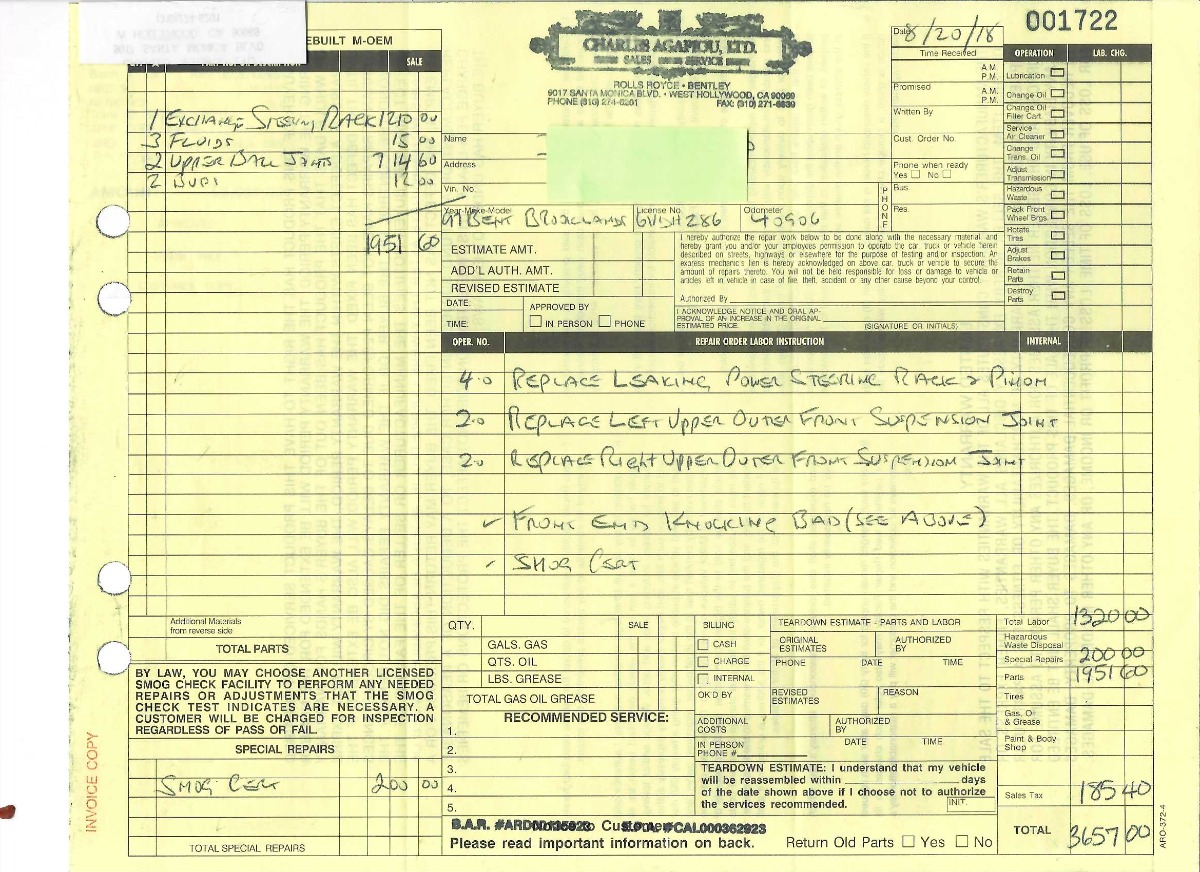 001722
CHARLES AGAPIOU, LTD.
SALES SERVICE
ROLLS ROYCE • BENTLEY
9017 SANTA MONICA BLVD. • WEST HOLLYWOOD, CA 90069
PHONE (310) 274-6201 FAX: (310) 271-6839
Date 8/20/18
Time Received
A.M.
P.M.
Promised
A.M.
P.M.
Written By
Cust. Order No.
Phone when ready
Yes No
PHONE
Bus.
Res.
OPERATION LAB. CHG.
Lubrication
Change Oil
Change Oil
Filter Cart.
Service
Air Cleaner
Change
Trans. Oil
Adjust
Transmission
Hazardous
Waste
Pack Front
Wheel Brgs.
Rotate
Tires
Adjust
Brakes
Retain
Parts
Destroy
Parts
EBUILT M-OEM
SALE
1 EXCHANGE STEERING RACK 1210 00
3 FLUIDS 15 00
2 UPPER BALL JOINTS 714 60
2 12 00
1951 60
Name
Address
Vin. No.
Year-Make-Model 97 BENT BROOKLANDS License No. Odometer 40906
ESTIMATE AMT.
ADD'L AUTH. AMT.
REVISED ESTIMATE
DATE:
TIME:
APPROVED BY
IN PERSON PHONE
I hereby authorize the repair work below to be done along with the necessary material and
hereby grant you and/or your employees permission to operate the car, truck or vehicle herein
described on streets, highways or elsewhere for the purpose of testing and/or inspection. An
express mechanic's lien is hereby acknowledged on above car, truck or vehicle to secure the
amount of repairs thereto. You will not be held responsible for loss or damage to vehicle or
articles left in vehicle in case of fire, theft, accident or any other cause beyond your control.
Authorized By
I ACKNOWLEDGE NOTICE AND ORAL AP-
PROVAL OF AN INCREASE IN THE ORIGINAL
ESTIMATED PRICE.
(SIGNATURE OR INITIALS)
OPER. NO. REPAIR ORDER LABOR INSTRUCTION INTERNAL
4.0 REPLACE LEAKING POWER STEERING RACK & PINION
2.0 REPLACE LEFT UPPER OUTER FRONT SUSPENSION JOINT
2.0 REPLACE RIGHT UPPER OUTER FRONT SUSPENSION JOINT
✓ FRONT END KNOCKING BAD (SEE ABOVE)
✓ SMOG CERT
Additional Materials
from reverse side
TOTAL PARTS
BY LAW, YOU MAY CHOOSE ANOTHER LICENSED
SMOG CHECK FACILITY TO PERFORM ANY NEEDED
REPAIRS OR ADJUSTMENTS THAT THE SMOG
CHECK TEST INDICATES ARE NECESSARY. A
CUSTOMER WILL BE CHARGED FOR INSPECTION
REGARDLESS OF PASS OR FAIL.
SPECIAL REPAIRS
SMOG CERT 200 00
TOTAL SPECIAL REPAIRS
INVOICE COPY
QTY. SALE
GALS. GAS
QTS. OIL
LBS. GREASE
TOTAL GAS OIL GREASE
RECOMMENDED SERVICE:
1.
2.
3.
4.
5.
BILLING
CASH
CHARGE
INTERNAL
OK'D BY
TEARDOWN ESTIMATE - PARTS AND LABOR
ORIGINAL
ESTIMATES
AUTHORIZED
BY
PHONE DATE TIME
REVISED
ESTIMATES
REASON
ADDITIONAL
COSTS
AUTHORIZED
BY
IN PERSON
PHONE #
DATE TIME
TEARDOWN ESTIMATE: I understand that my vehicle
will be reassembled within days
of the date shown above if I choose not to authorize
the services recommended.
INIT.
Total Labor 1320 00
Hazardous
Waste Disposal
Special Repairs 200 00
Parts 1951 60
Tires
Gas, Oil
& Grease
Paint & Body
Shop
Sales Tax 185 40
TOTAL 3657 00
B.A.R. #ARD00135923 E.P.A. #CAL000362923
Please read important information on back.
Return Old Parts Yes No
ARO-372-4